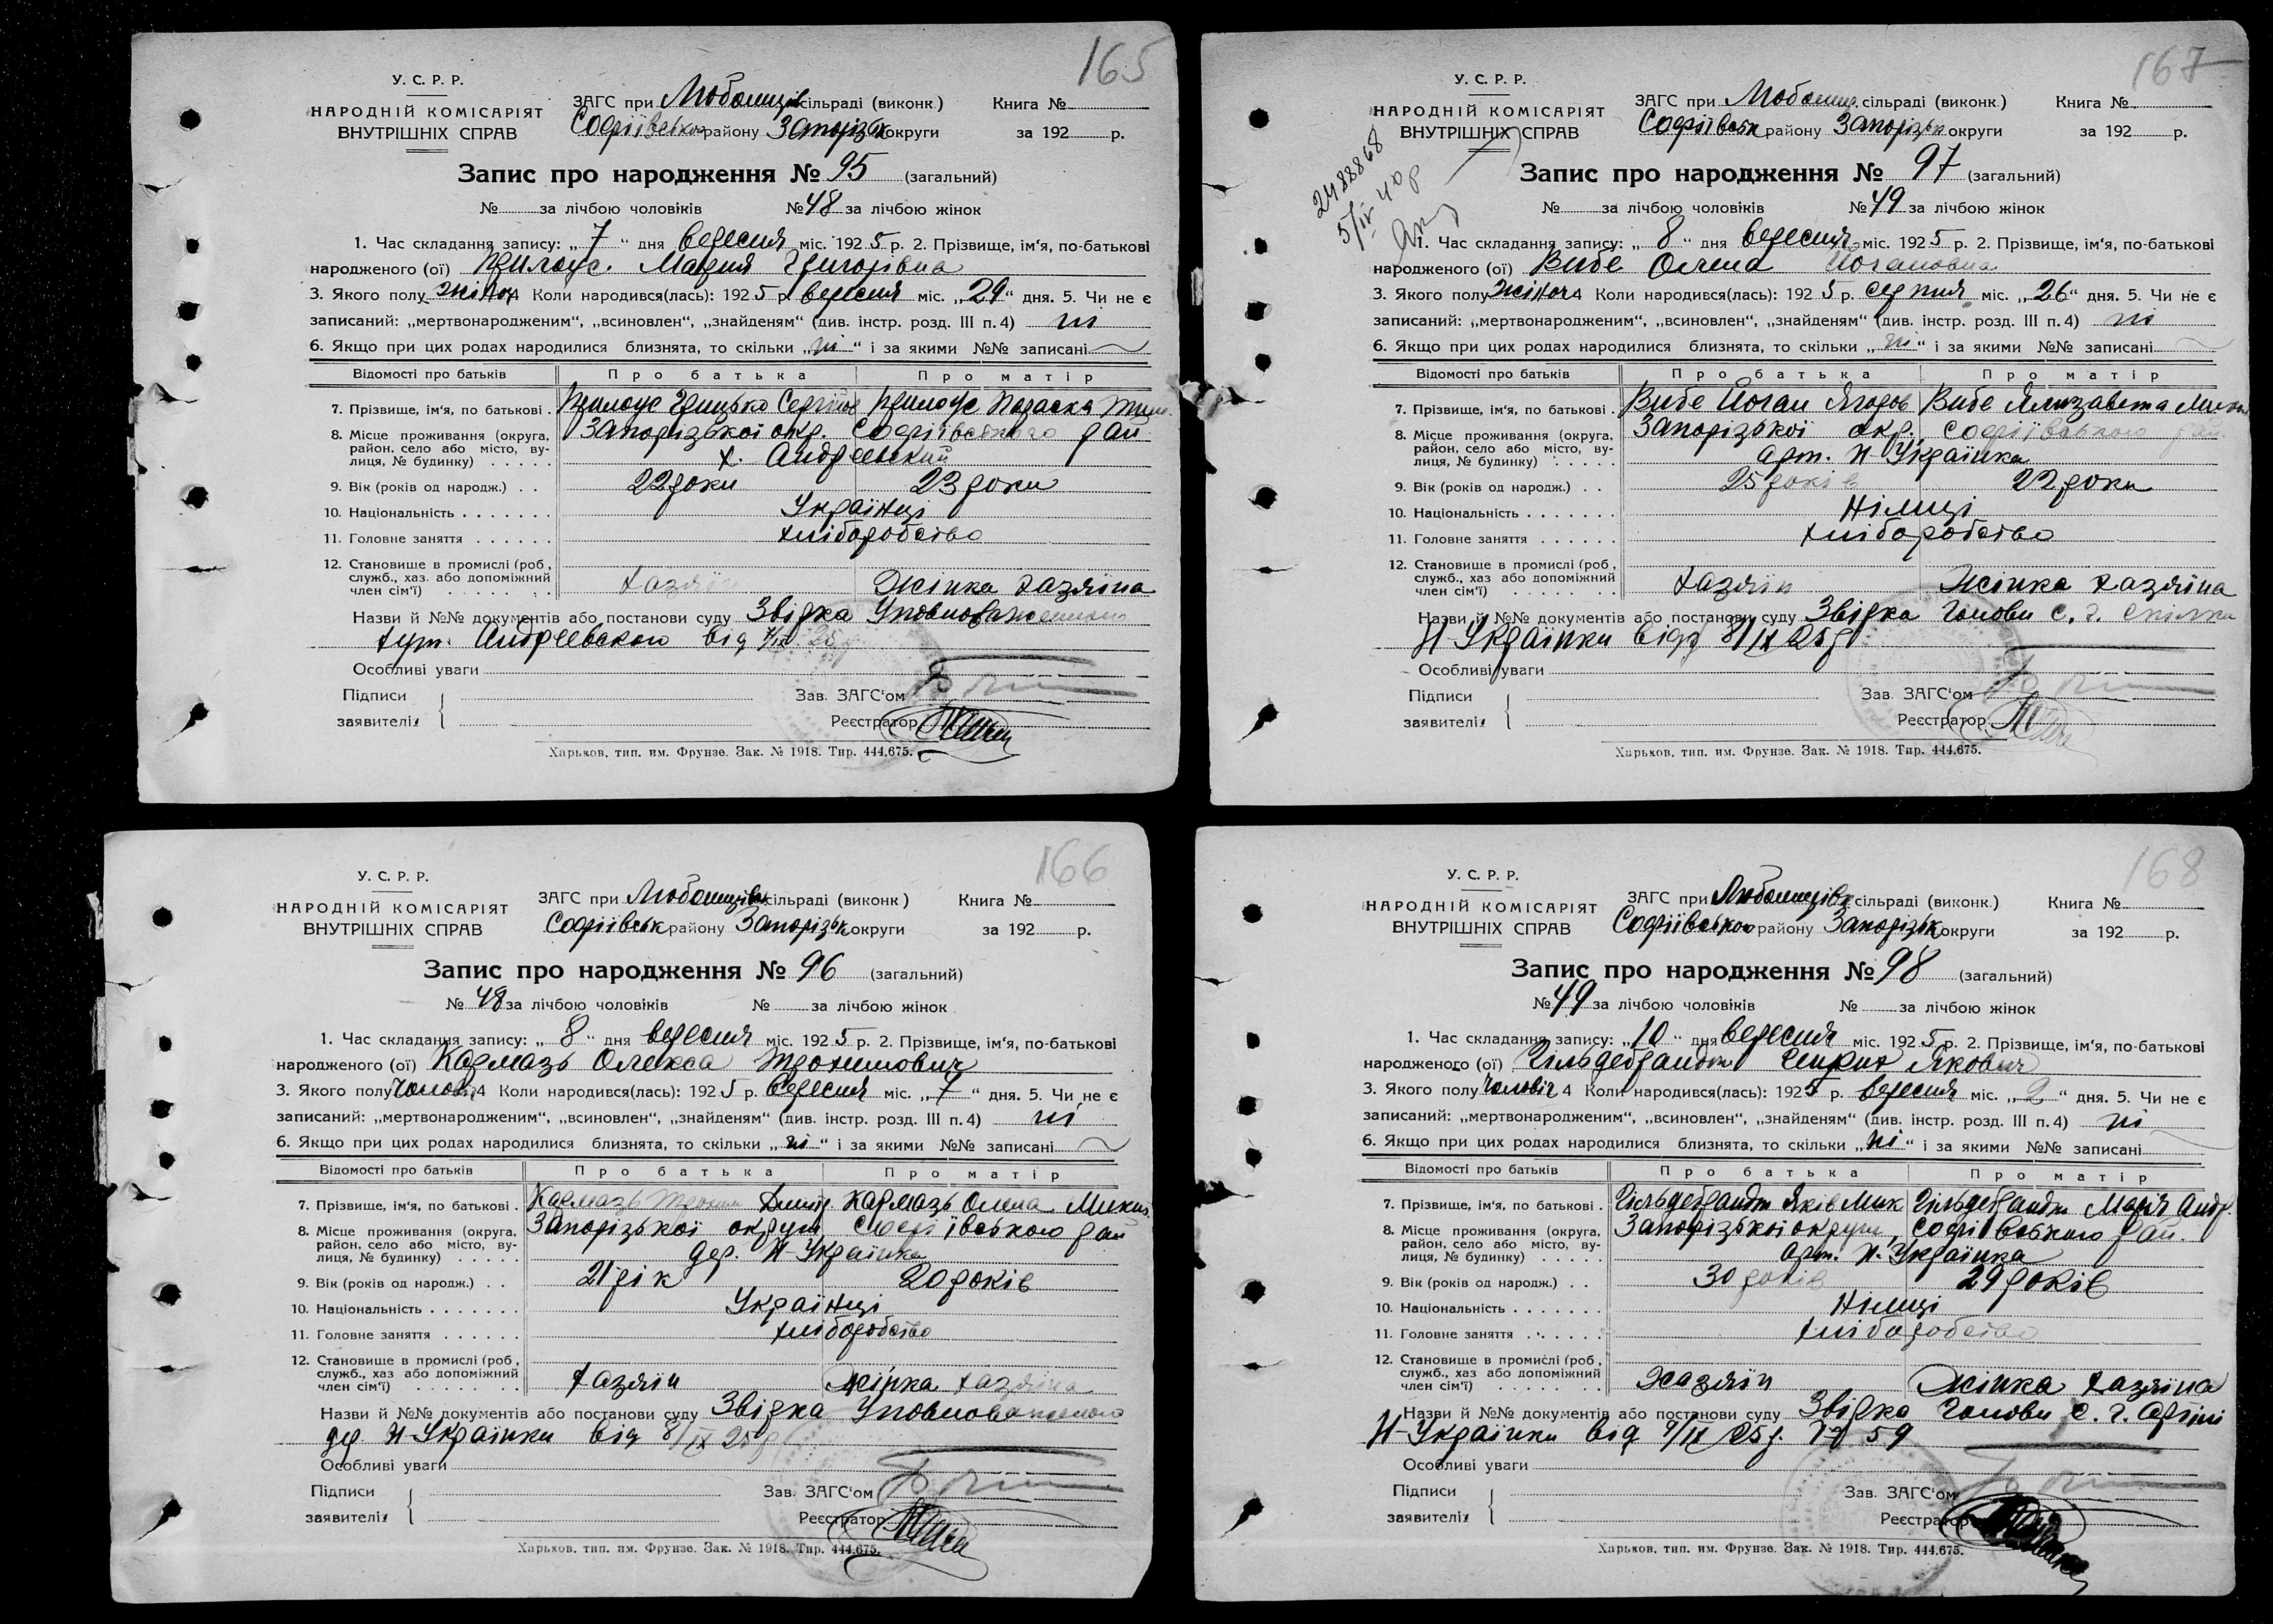 165
У. С. Р. Р.
НАРОДНІЙ КОМІСАРІЯТ
ВНУТРІШНІХ СПРАВ
ЗАГС при Любомирів сільраді (виконк.) Книга №
Софіївського району Запорізьк округи за 192 р.
Запис про народження № 95 (загальний)
№ за лічбою чоловіків № 48 за лічбою жінок
1. Час складання запису: „ 7 “ дня вересня міс. 192 5 р. 2. Прізвище, ім‘я, по-батькові
народженого (ої) Мария Григорівна
3. Якого полу жіноч 4 Коли народився(лась): 192 5 р. вересня міс. „ 29 “ дня. 5. Чи не є
записаний: „мертвонародженим“, „всиновлен“, „знайденям“ (див. інстр. розд. III п. 4) ні
6. Якщо при цих родах народилися близнята, то скільки „ ні “ і за якими №№ записані
Відомості про батьків Про батька Про матір
7. Прізвище, ім‘я, по батькові Грицько Сергійов Параска
8. Місце проживання (округа, район, село або місто, вулиця, № будинку) Запорізької окр. Софіївського рай
х. Андреевский
9. Вік (років од народж.) 22 роки 23 роки
10. Національність Українці
11. Головне заняття хліборобство
12. Становище в промислі (роб, служб., хаз. або допоміжний член сім‘ї) хазяїн Жінка хазяїна
Назви й №№ документів або постанови суду Звідка Уповноваженого
хут. Андреевского від 7/IX 25 р
Особливі уваги
Підписи Зав. ЗАГС‘ом
заявителів Реєстратор
Харьков, тип. им. Фрунзе. Зак. № 1918. Тир. 444.675.
167
2488868
5/IV 40 р
У. С. Р. Р.
НАРОДНІЙ КОМІСАРІЯТ
ВНУТРІШНІХ СПРАВ
ЗАГС при Любомир. сільраді (виконк.) Книга №
Софіївськ району Запорізьк округи за 192 р.
Запис про народження № 97 (загальний)
№ за лічбою чоловіків № 49 за лічбою жінок
1. Час складання запису: „ 8 “ дня вересня міс. 192 5 р. 2. Прізвище, ім‘я, по-батькові
народженого (ої) Вибе Олена Йогановна
3. Якого полу Жіноч 4 Коли народився(лась): 192 5 р. серпня міс. „ 26 “ дня. 5. Чи не є
записаний: „мертвонародженим“, „всиновлен“, „знайденям“ (див. інстр. розд. III п. 4) ні
6. Якщо при цих родах народилися близнята, то скільки „ ні “ і за якими №№ записані
Відомості про батьків Про батька Про матір
7. Прізвище, ім‘я, по батькові Вибе Йоган Вибе Єлизавета
8. Місце проживання (округа, район, село або місто, вулиця, № будинку) Запорізької окр., Софіївського рай.
арт. Н-Українка
9. Вік (років од народж.) 25 років 22 роки
10. Національність Німці
11. Головне заняття хліборобство
12. Становище в промислі (роб, служб., хаз або допоміжний член сім‘ї) хазяїн Жінка хазяїна
Назви й №№ документів або постанови суду Звідка Голови с. г. спілки
Н-Українки від 8/IX 25 р
Особливі уваги
Підписи Зав. ЗАГС‘ом
заявителів Реєстратор
Харьков, тип. им. Фрунзе. Зак. № 1918. Тир. 444.675.
166
У. С. Р. Р.
НАРОДНІЙ КОМІСАРІЯТ
ВНУТРІШНІХ СПРАВ
ЗАГС при Любомирівс сільраді (виконк) Книга №
Софіївськ району Запорізьк округи за 192 р.
Запис про народження № 96 (загальний)
№ 48 за лічбою чоловіків № за лічбою жінок
1. Час складання запису: „ 8 “ дня вересня міс. 192 5 р. 2. Прізвище, ім‘я, по-батькові
народженого (ої) Кармазь Олекса Трохимович
3. Якого полу Чолов. 4 Коли народився(лась): 192 5 р. Вересня міс. „ 7 “ дня. 5. Чи не є
записаний: „мертвонародженим“, „всиновлен“, „знайденям“ (див. інстр. розд. III п. 4) ні
6. Якщо при цих родах народилися близнята, то скільки „ ні “ і за якими №№ записані
Відомості про батьків Про батька Про матір
7. Прізвище, ім‘я, по батькові Кармазь Трохим Дмитр. Кармазь Олена Микит.
8. Місце проживання (округа, район, село або місто, вулиця, № будинку) Запорізької округи Софіївського рай
дер. Н-Українка
9. Вік (років од народж.) 21 рік 20 років
10. Національність Українці
11. Головне заняття хліборобство
12. Становище в промислі (роб, служб., хаз або допоміжний член сім‘ї) хазяїн Жінка хазяїна
Назви й №№ документів або постанови суду Звідка Уповноваженого
дер Н-Українки від 8/IX 25 р
Особливі уваги
Підписи Зав. ЗАГС‘ом
заявителів Реєстратор
Харьков, тип. им. Фрунзе. Зак. № 1918. Тир. 444.675.
168
У. С. Р. Р.
НАРОДНІЙ КОМІСАРІЯТ
ВНУТРІШНІХ СПРАВ
ЗАГС при Любомирівс сільраді (виконк.) Книга №
Софіївського району Запорізьк округи за 192 р.
Запис про народження № 98 (загальний)
№ 49 за лічбою чоловіків № за лічбою жінок
1. Час складання запису: „ 10 “ дня вересня міс. 192 5 р. 2. Прізвище, ім‘я, по-батькові
народженого (ої) Гільдебрандт Генрих Якович
3. Якого полу чоловіч 4 Коли народився(лась): 192 5 р. вересня міс. „ 2 “ дня. 5. Чи не є
записаний: „мертвонародженим“, „всиновлен“, „знайденям“ (див. інстр. розд. III п. 4) ні
6. Якщо при цих родах народилися близнята, то скільки „ ні “ і за якими №№ записані
Відомості про батьків Про батька Про матір
7. Прізвище, ім‘я, по батькові Гільдебрандт Яків Мик Гільдебрандт Марія Андр.
8. Місце проживання (округа, район, село або місто, вулиця, № будинку) Запорізької округи, Софіівського рай.
арт. Н. Українка
9. Вік (років од народж.) 30 років 29 років
10. Національність Німці
11. Головне заняття хліборобство
12. Становище в промислі (роб, служб., хаз або допоміжний член сім‘ї) Хазяїн Жінка хазяїна
Назви й №№ документів або постанови суду Звідка Голови с. г. Артілі
Н-Українки від 9/IX 25 р. № 59
Особливі уваги
Підписи Зав. ЗАГС‘ом
заявителів Реєстратор
Харьков, тип. им. Фрунзе. Зак. № 1918. Тир. 444.675.